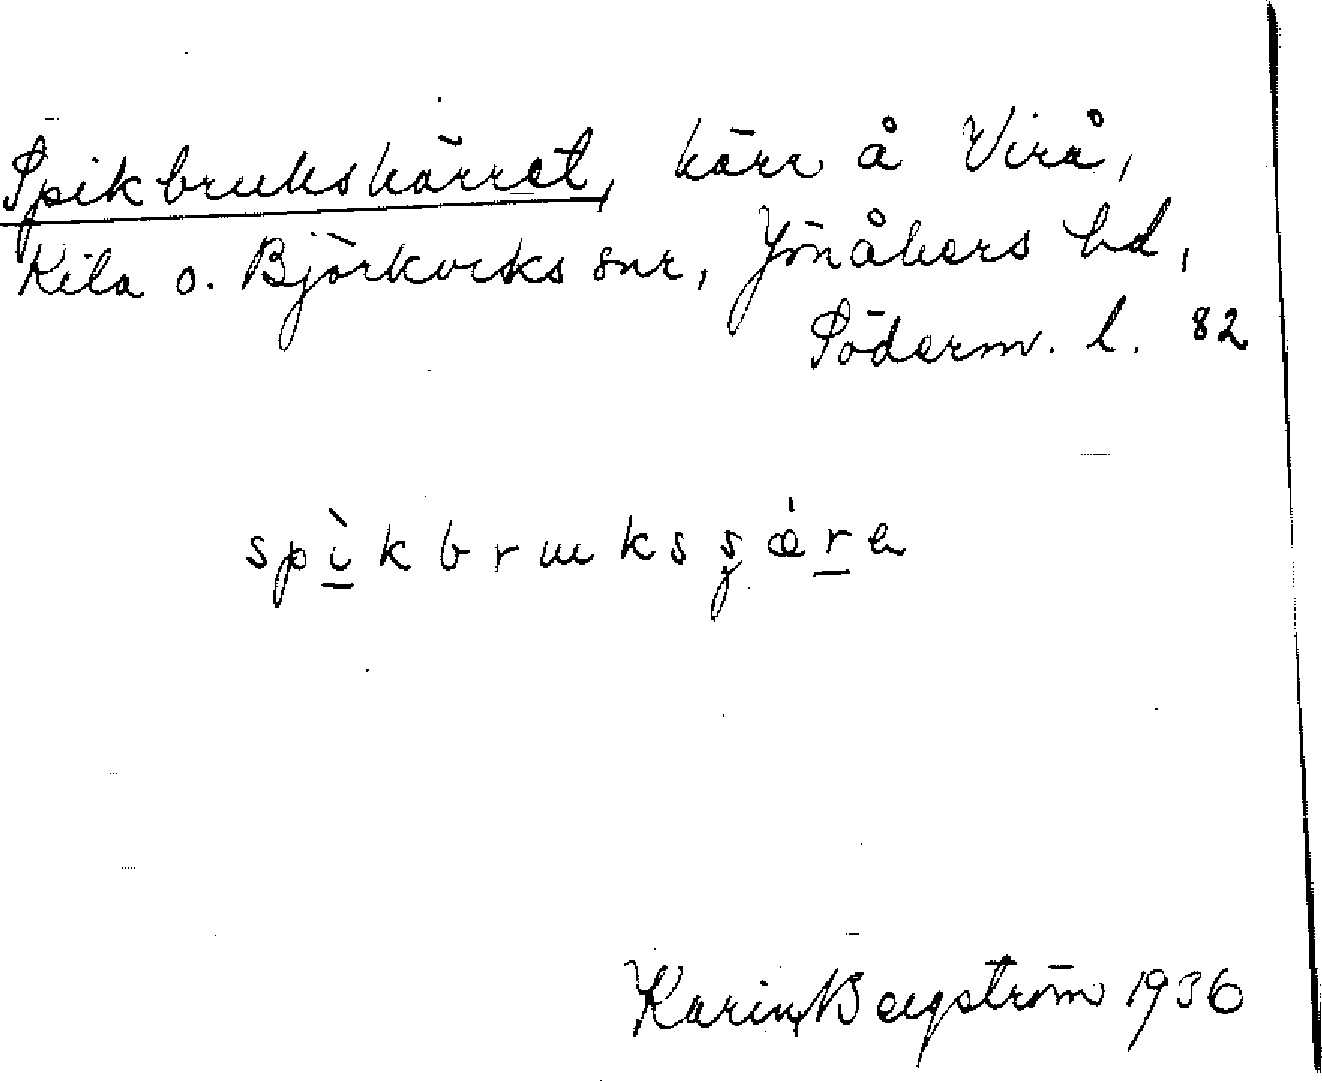 Spikbrukskärret, kärr å Virå,
Kila o. Björkviks snr, Jönåkers hd,
Söderm. l. 82
spìkbruks
Karin Bergström 1936